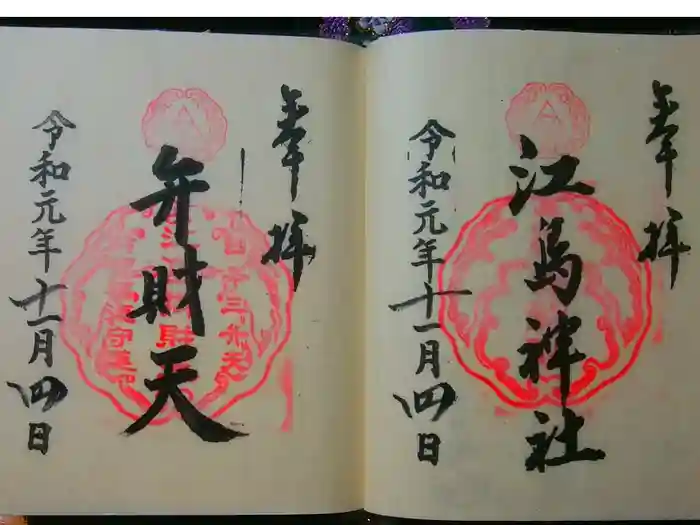 奉拝
江島神社
令和元年十一月四日
奉拝
弁財天
令和元年十一月四日